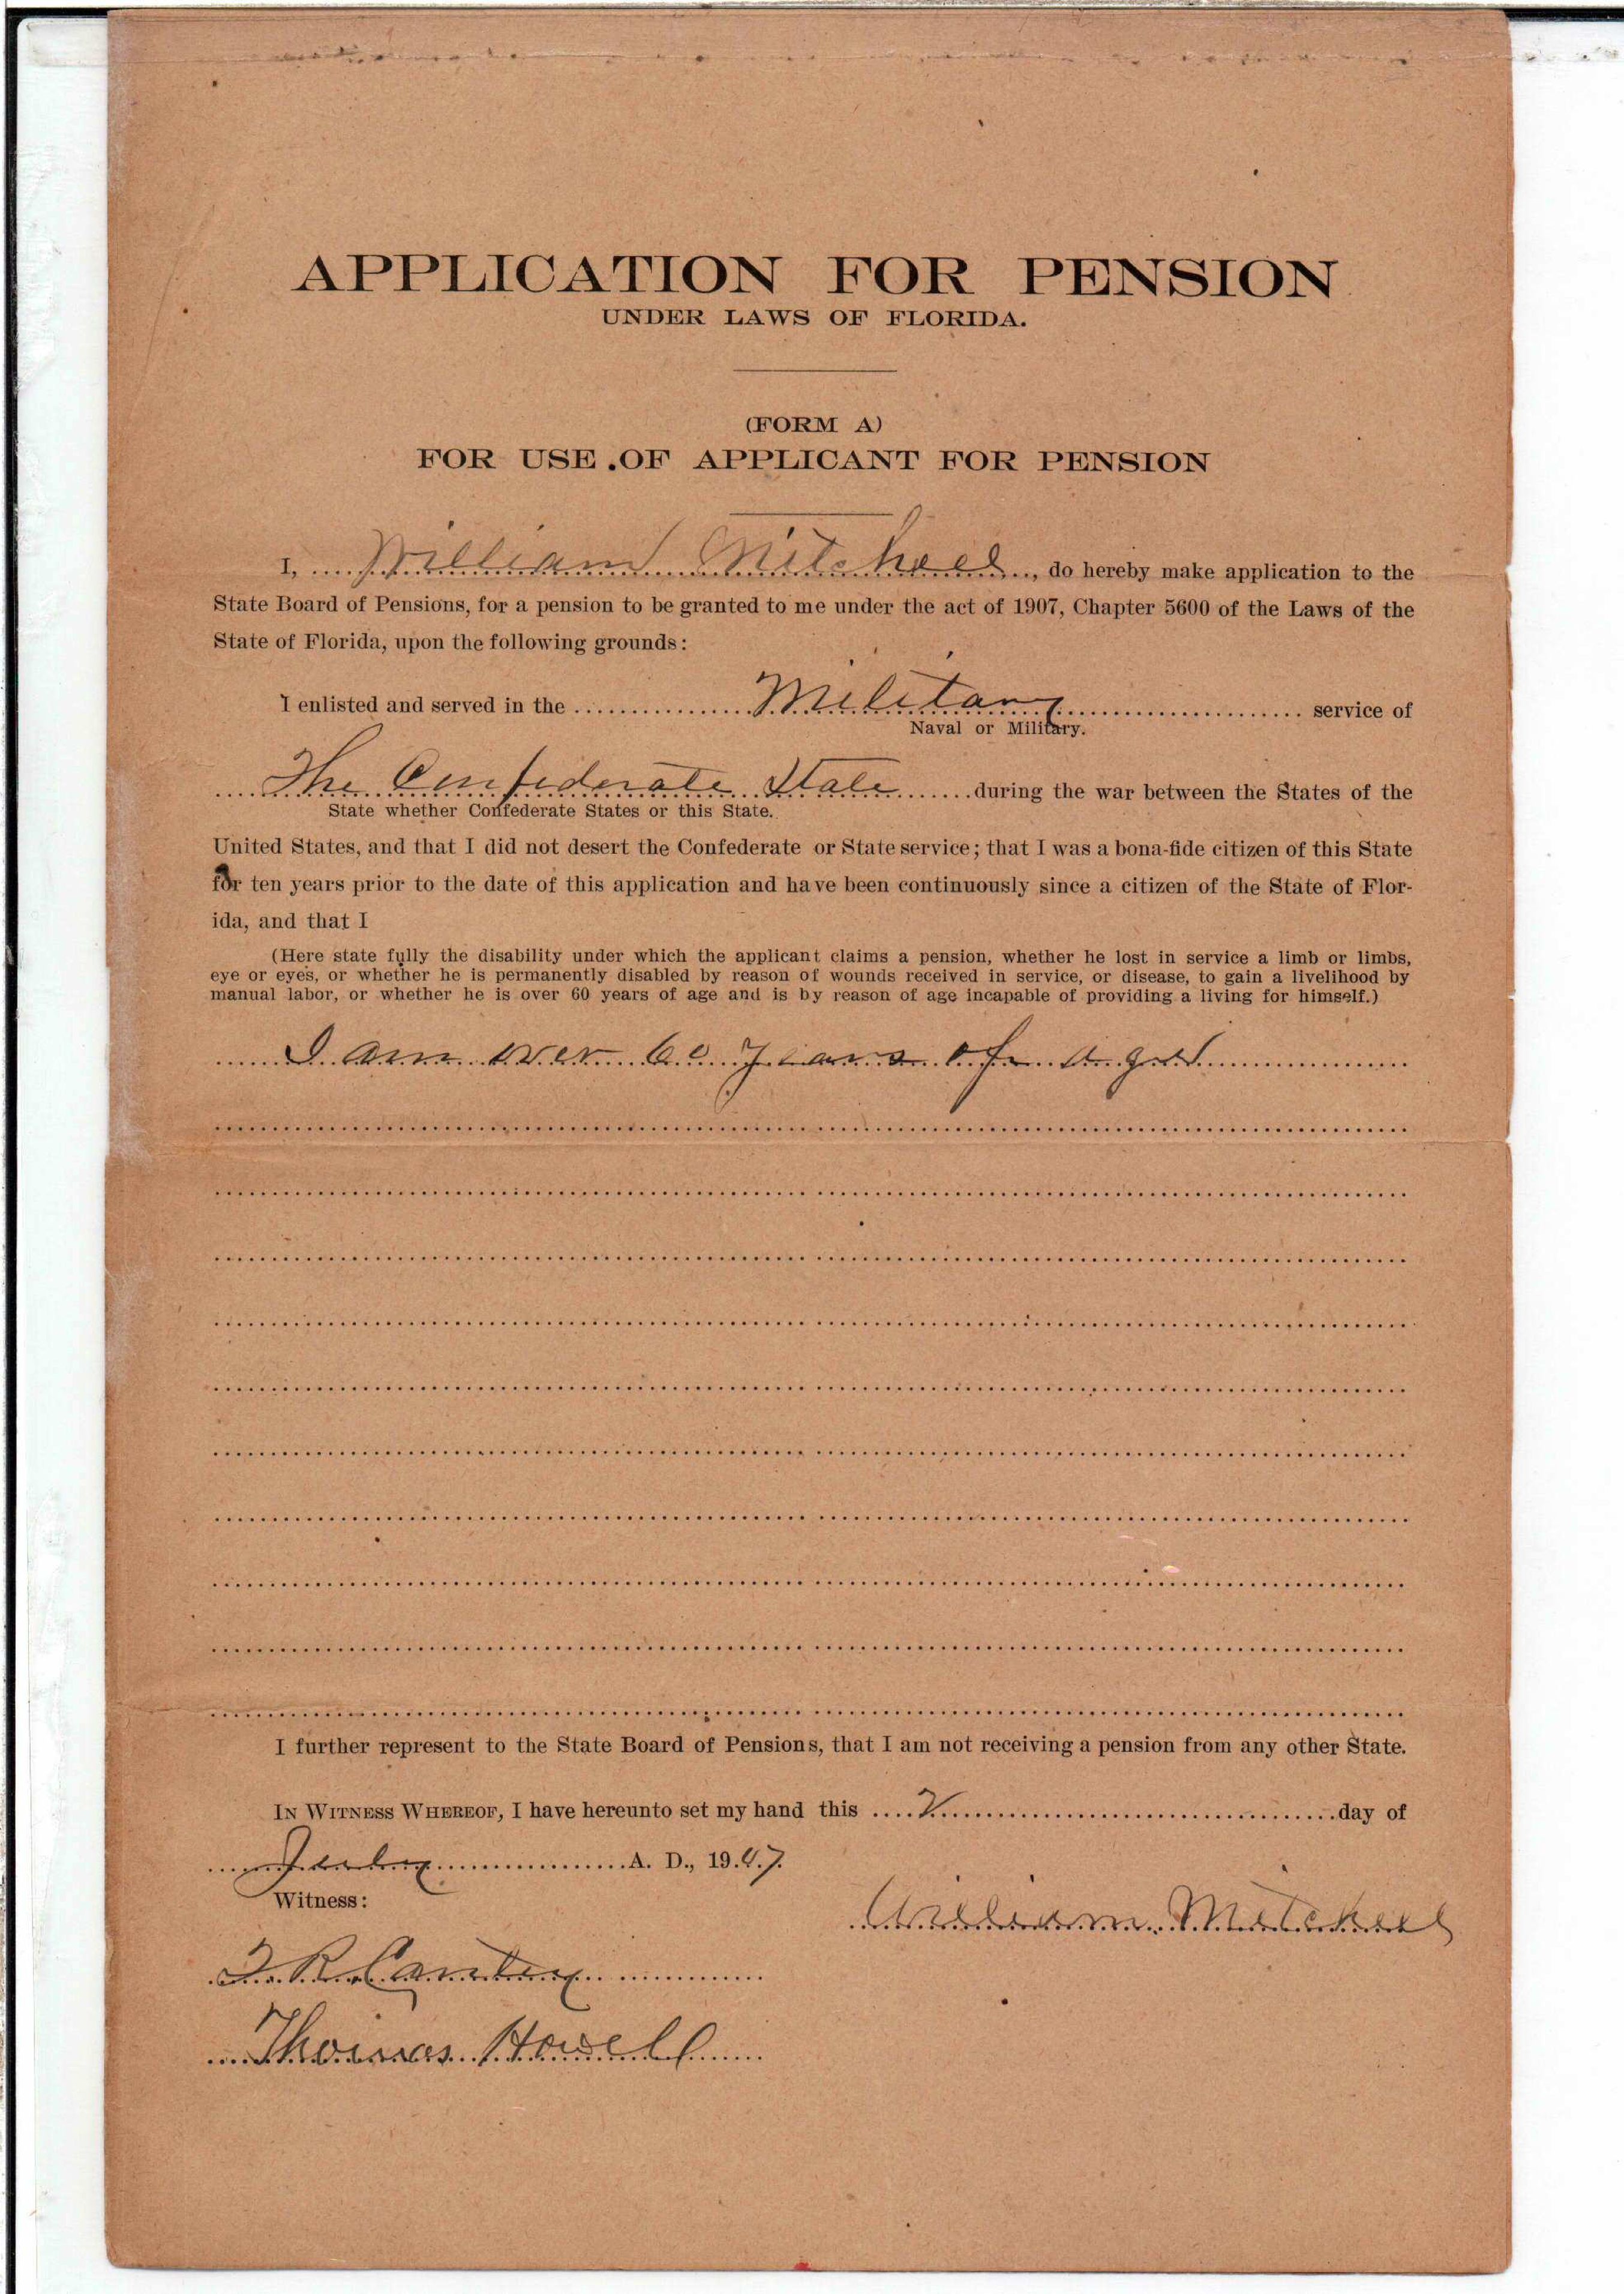 APPLICATION FOR PENSION
UNDER LAWS OF FLORIDA.
(FORM A)
FOR USE OF APPLICANT FOR PENSION
I, William Mitchell, do hereby make application to the
State Board of Pensions, for a pension to be granted to me under the act of 1907, Chapter 5600 of the Laws of the
State of Florida, upon the following grounds:
I enlisted and served in the Military service of
Naval or Military.
The Confederate State during the war between the States of the
State whether Confederate States or this State.
United States, and that I did not desert the Confederate or State service; that I was a bona-fide citizen of this State
for ten years prior to the date of this application and have been continuously since a citizen of the State of Flor-
ida, and that I
(Here state fully the disability under which the applicant claims a pension, whether he lost in service a limb or limbs,
eye or eyes, or whether he is permanently disabled by reason of wounds received in service, or disease, to gain a livelihood by
manual labor, or whether he is over 60 years of age and is by reason of age incapable of providing a living for himself.)
I am over 60 years of age
I further represent to the State Board of Pensions, that I am not receiving a pension from any other State.
IN WITNESS WHEREOF, I have hereunto set my hand this 2 day of
July A. D., 1907.
Witness:
William Mitchell
Thomas Howell